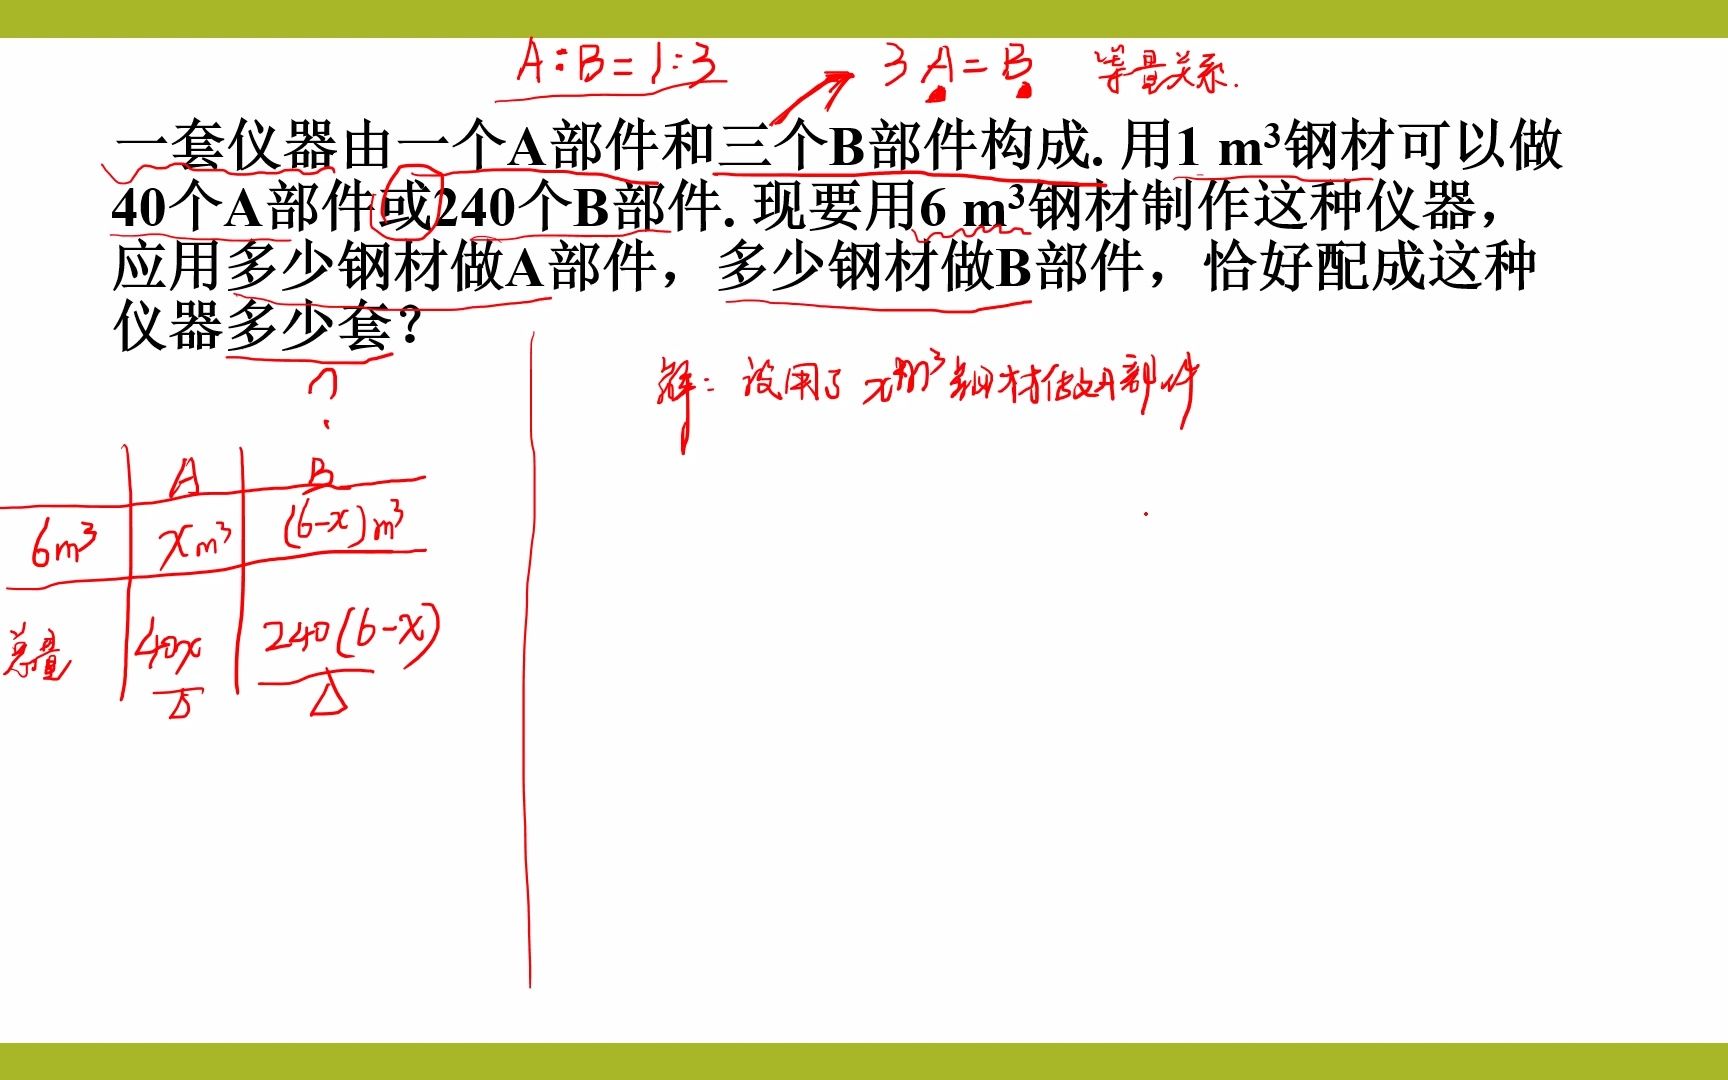 A:B=1:3 3A=B 等量关系.
一套仪器由一个A部件和三个B部件构成. 用1 m³钢材可以做
40个A部件或240个B部件. 现要用6 m³钢材制作这种仪器，
应用多少钢材做A部件，多少钢材做B部件，恰好配成这种
仪器多少套？
解：设用了 x m³ 钢材做A部件
A B
6m³ xm³ (6-x)m³
总量 40x 240(6-x)